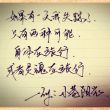 如果有一天我失踪了
只有两种可能
身体在旅行
或者灵魂在旅行